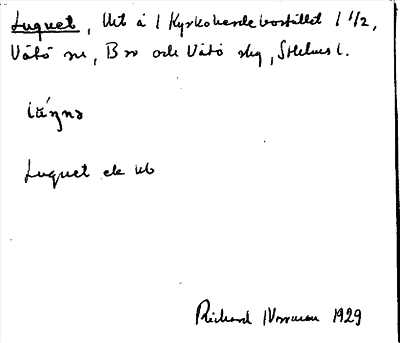 Luguet, Ut å 1 Kyrkoherdebostället 1 1/2,
Vätö sn, Bro och Vätö skg, Sthlms l.
Luguet ek ub
Richard 1929